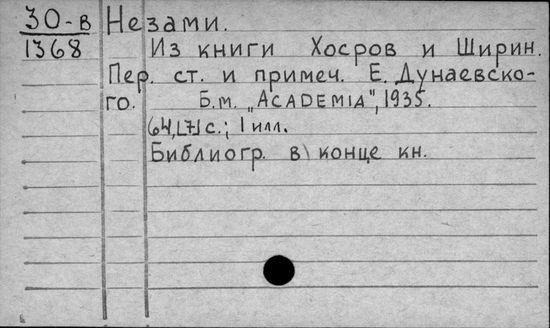 30-в Незами.
1368 Из книги Хосров и Ширин.
Пер. ст. и примеч. Е. Дунаевско-
го. Б.м. „ACADEMIA", 1935.
64,[7] с.; 1 илл.
Библиогр. в конце кн.